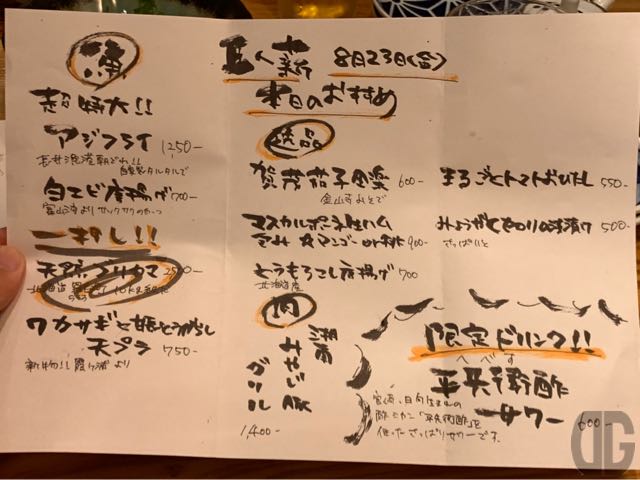 魚
超特大!!
アジフライ 1250-
自家製タルタルで
白エビ唐揚げ 700
富山湾よりサックサクのやつ
一押し!!
天然ブリカマ 2500
ワカサギと姫とうがらし
天プラ 750-
新物!! 霞ヶ浦より
8月23日(金)
本日のおすすめ
逸品
賀茂茄子田楽 600-
金山寺みそで
マスカルポーネ生ハム
マンゴー or 桃 900-
とうもろこし唐揚げ 700
北海道産
肉
湘南
みやじ豚
グリル
1,400-
まるごとトマトおひたし 550-
みょうがときゅうりの浅漬け 500-
さっぱりと
限定ドリンク!!
へべす
平兵衛酢
サワー 600-
宮崎、日向生まれの
酢ミカン「平兵衛酢」を
使ったさっぱりサワーです。
DG